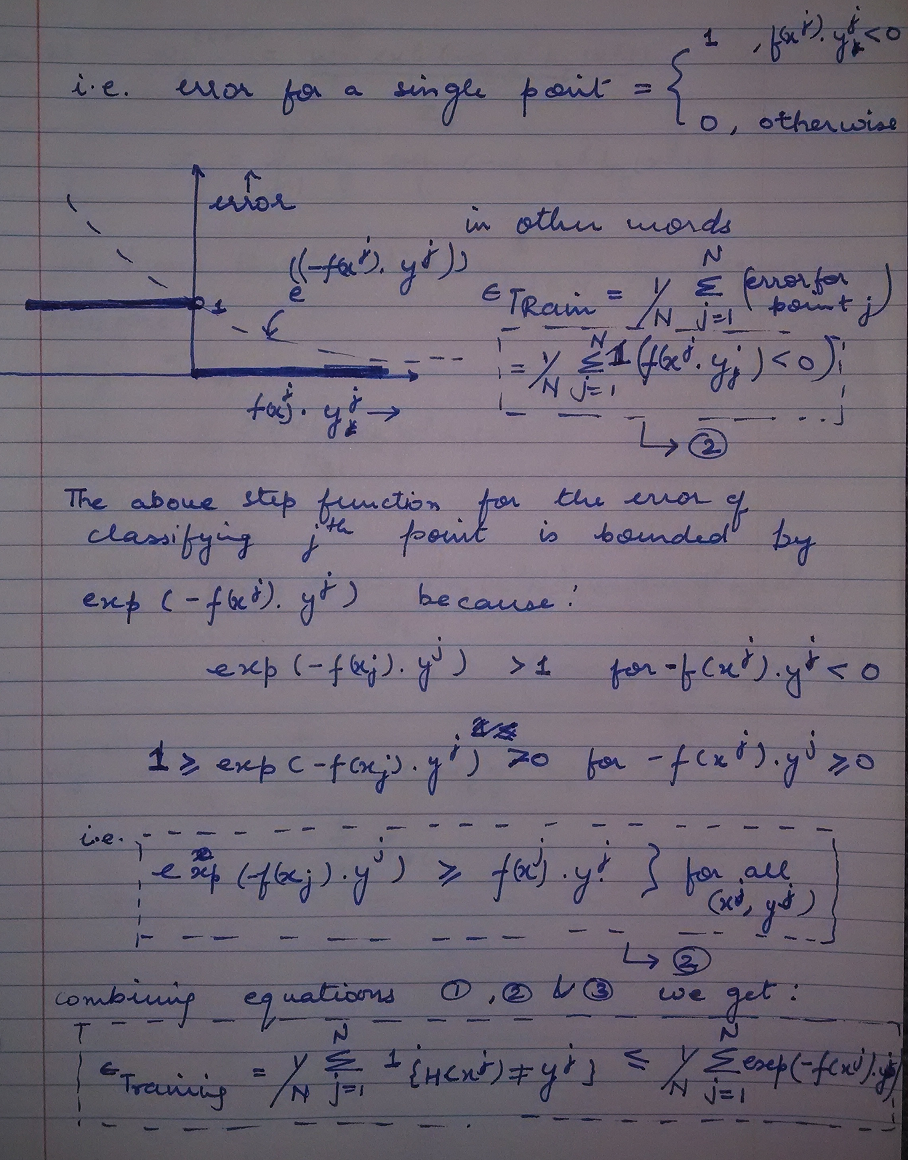 i.e. error for a single point = { 1 , f(x^j). y^j < 0
0, otherwise
↑
error
in other words
e^((-f(x^j). y^j))
1
ϵ_TRain = 1/N Σ_{j=1}^{N} (error for point j)
= 1/N Σ_{j=1}^{N} 1 (f(x^j . y_j) < 0)
f(x^j). y^j →
↳ ②
The above step function for the error of
classifying j^th point is bounded by
exp (-f(x^j). y^j) because:
exp (-f(x_j). y^j) > 1 for -f(x^j). y^j < 0
1 ≥ exp (-f(x_j). y^j) > 0 for -f(x^j). y^j ≥ 0
i.e.
exp (-f(x_j). y^j) ≥ f(x^j). y^j } for all
(x^j, y^j)
↳ ②
combining equations ①, ② & ③ we get:
ϵ_Training = 1/N Σ_{j=1}^{N} 1 {H(x^j) ≠ y^j} ≤ 1/N Σ_{j=1}^{N} exp(-f(x^j). y^j)